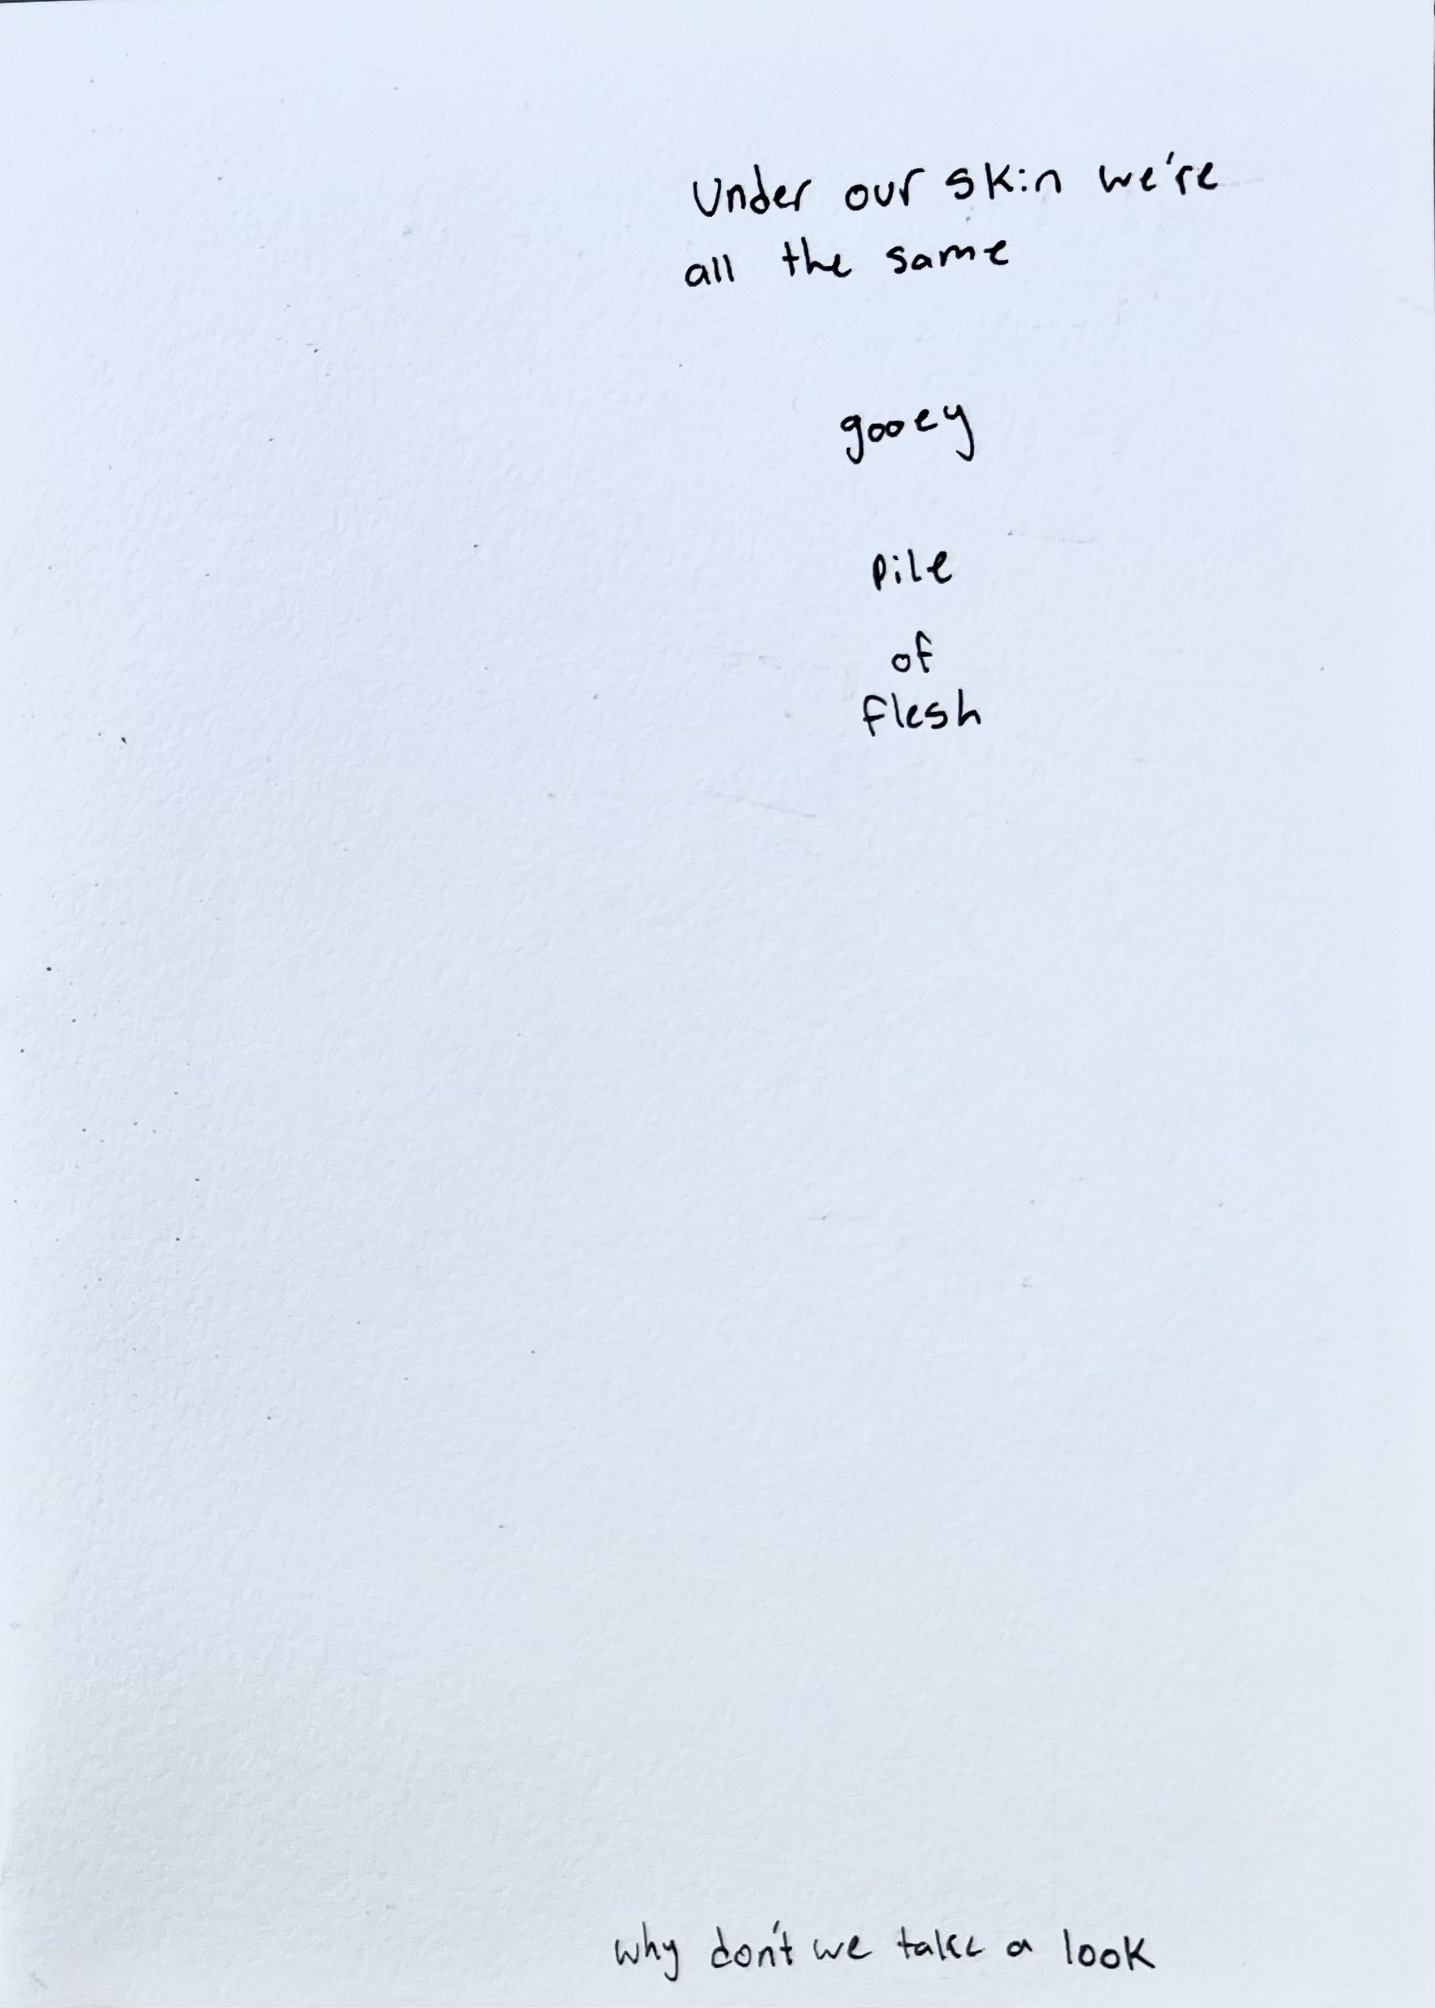 Under our skin we're
all the same
gooey
pile
of
flesh
why don't we take a look